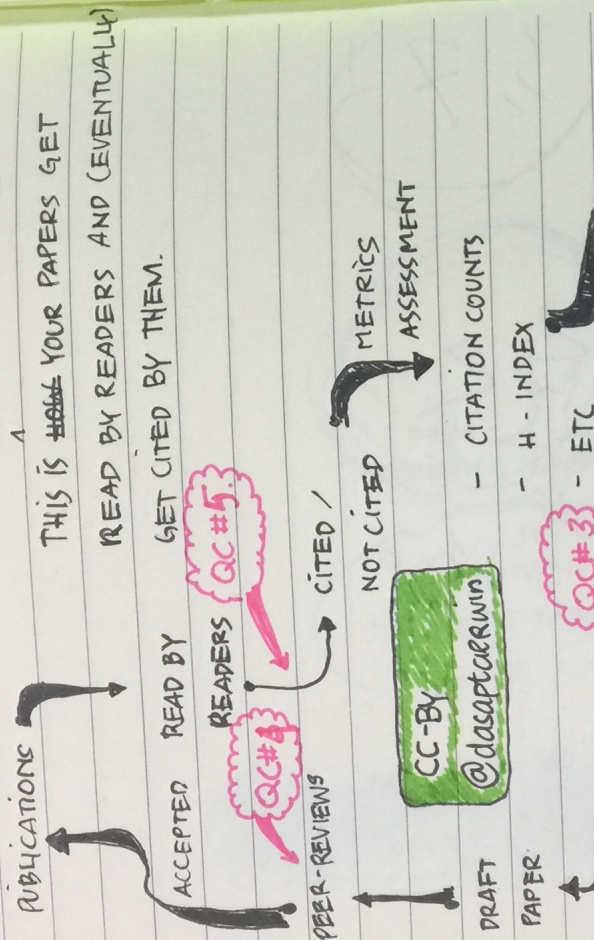 THIS IS YOUR PAPERS GET
READ BY READERS AND (EVENTUALLY)
GET CITED BY THEM.
PUBLICATIONS
ACCEPTED
READ BY
READERS
QC #5
QC #4
PEER-REVIEWS
CITED /
NOT CITED
METRICS
ASSESSMENT
- CITATION COUNTS
- H - INDEX
- ETC
QC #3
CC-BY
@dasaptaerwin
DRAFT
PAPER